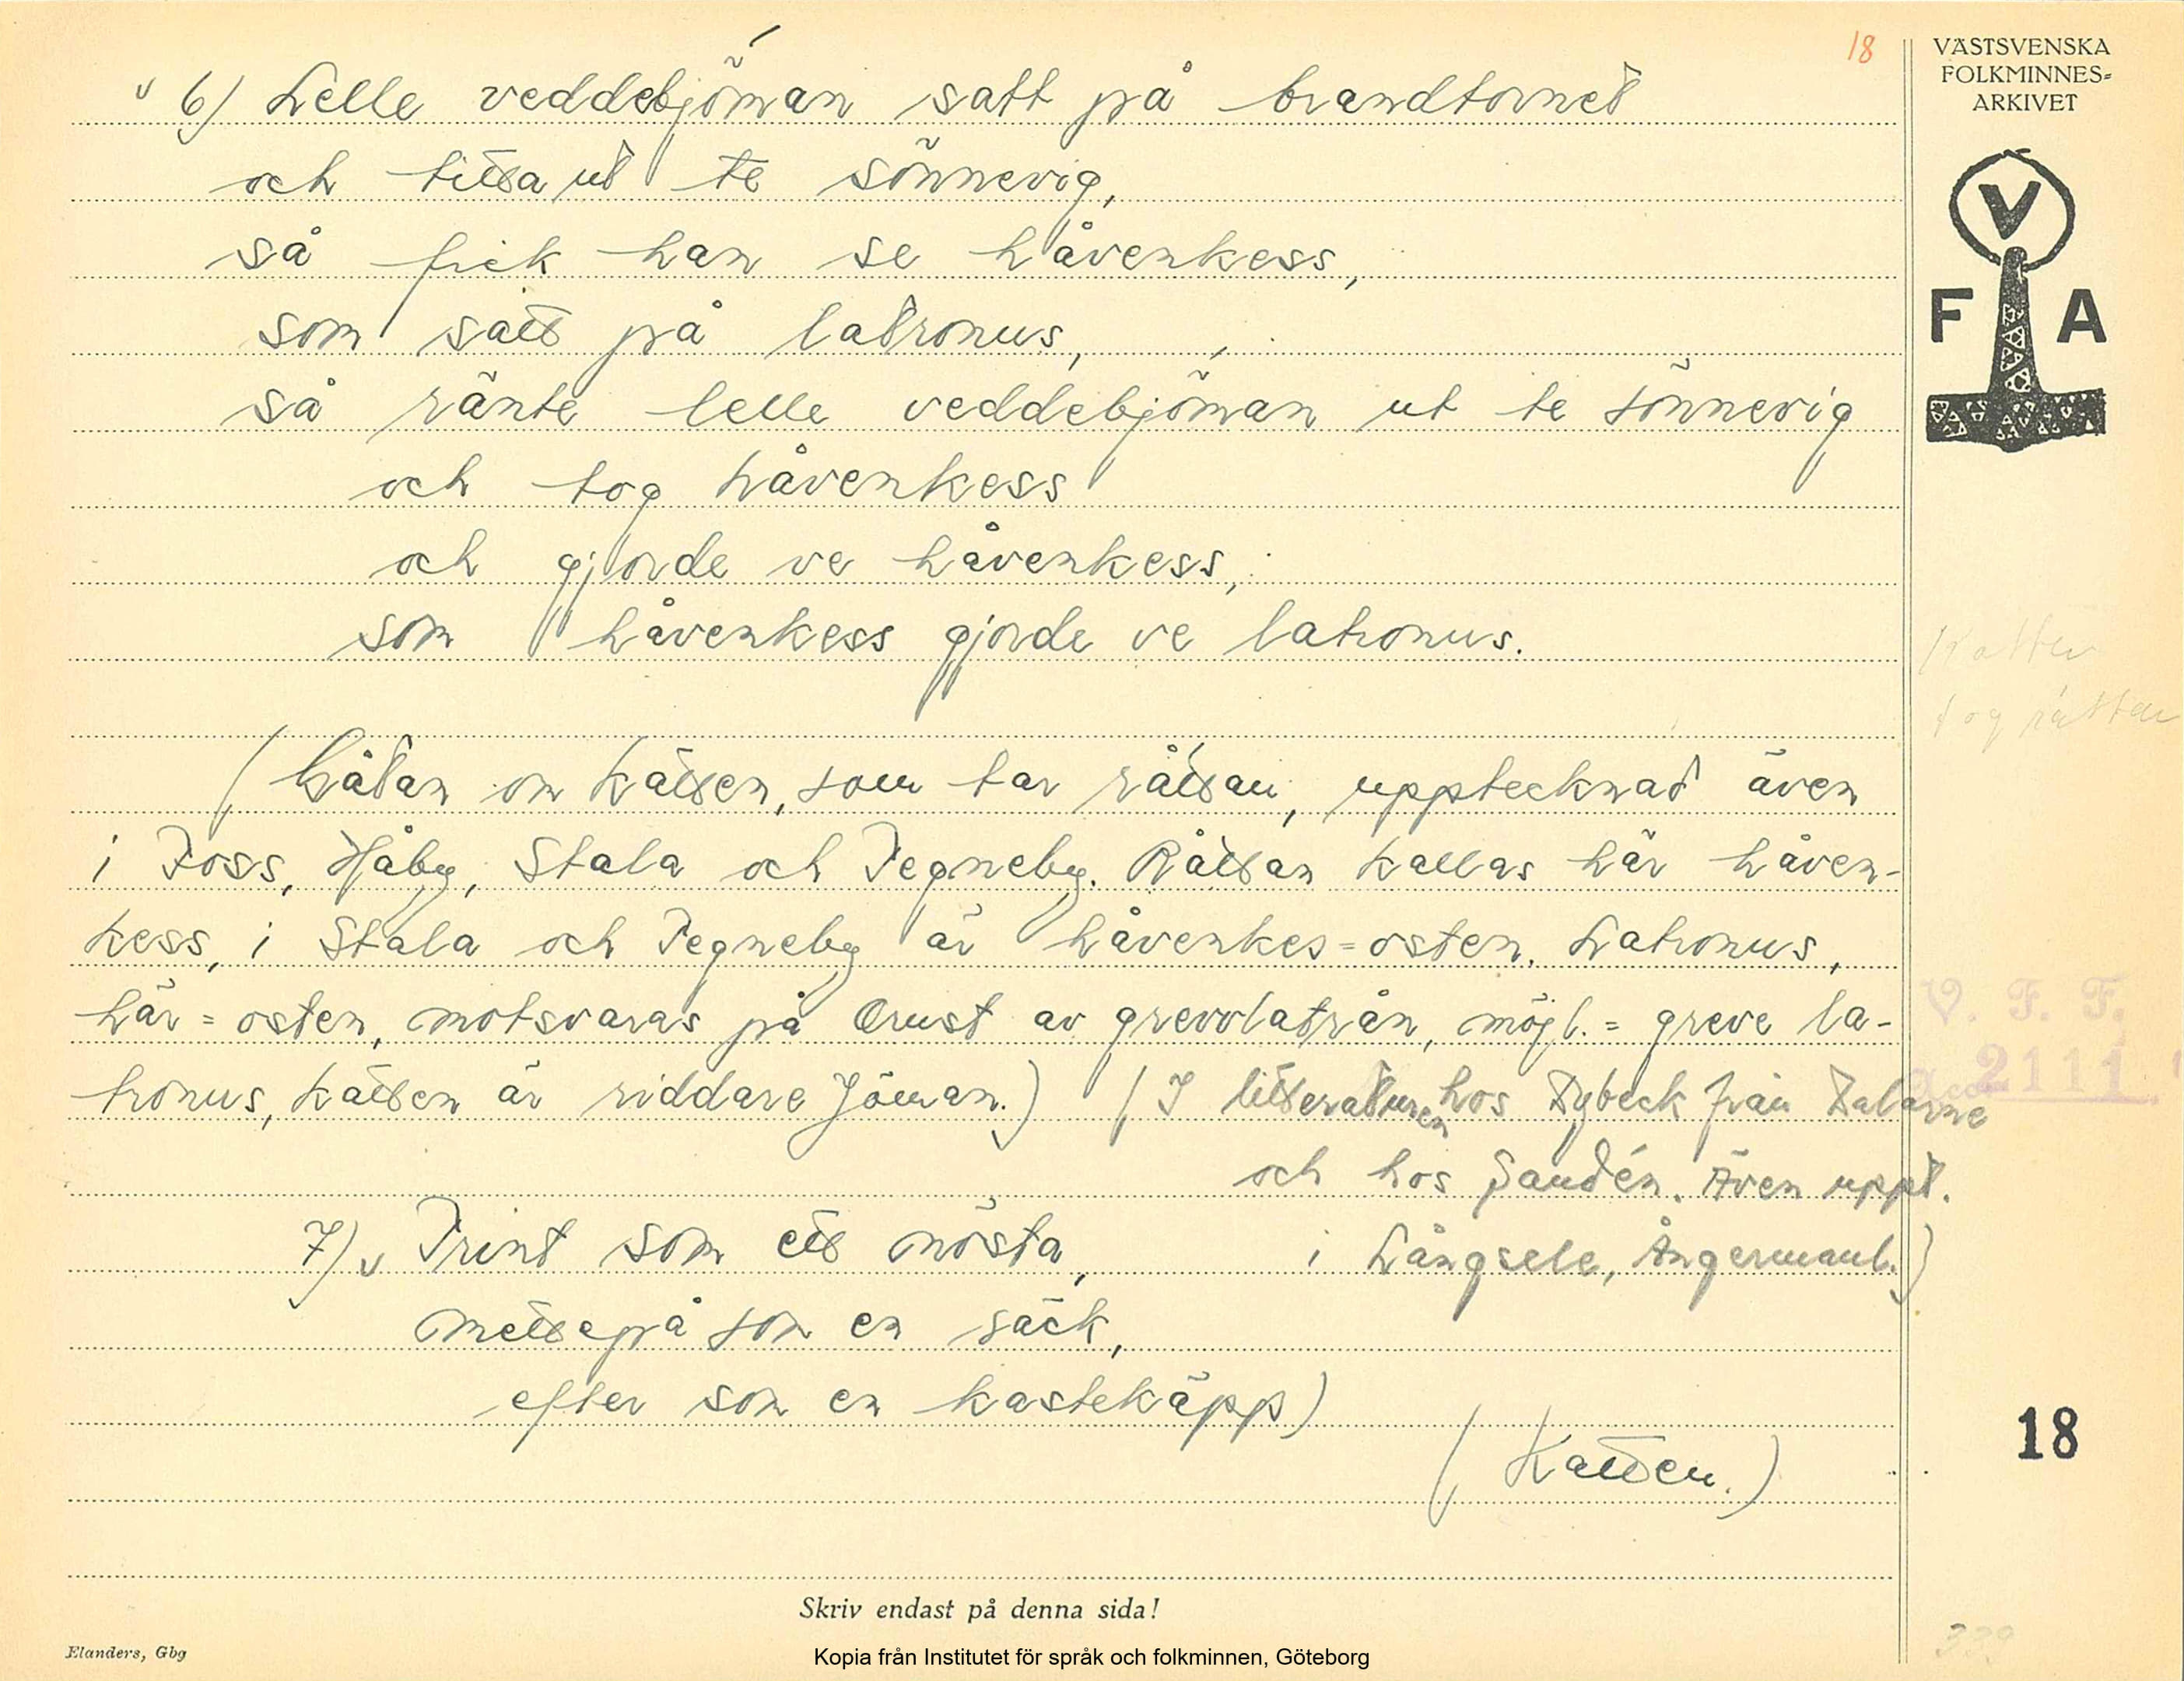 18
VÄSTSVENSKA
FOLKMINNES-
ARKIVET
V
F A
v 6) Lelle veddebjöman satt på brandtornet
och titta ut te sönnevig,
så fick han se håvenkess,
som satt på latronus,
så ränte lelle veddebjöman ut te sönnevig
och tog håvenkess
och gjorde ve håvenkess,
som håvenkess gjorde ve latronus.
Katten
tog råttan
(Gåtan om katten, som tar råttan, upptecknad även
i Foss, Håby, Stala och Tegneby. Råttan kallas här håven-
kess, i Stala och Tegneby är håvenkes = osten. Latronus,
här = osten, motsvaras på Orust av grevvlatrån, mögl. = greve la-
tronus, katten är riddare Jöman.) (I litteraturen hos Dybeck från Dalarne
och hos Sandén. Även uppt.
i Långsele, Ångermanl.)
V. F. F.
2111
7) v Trint som ett nösta,
mettepå som en säck,
efter som en kastekäpp)
(Katten.)
18
Skriv endast på denna sida!
Elanders, Gbg
Kopia från Institutet för språk och folkminnen, Göteborg
339